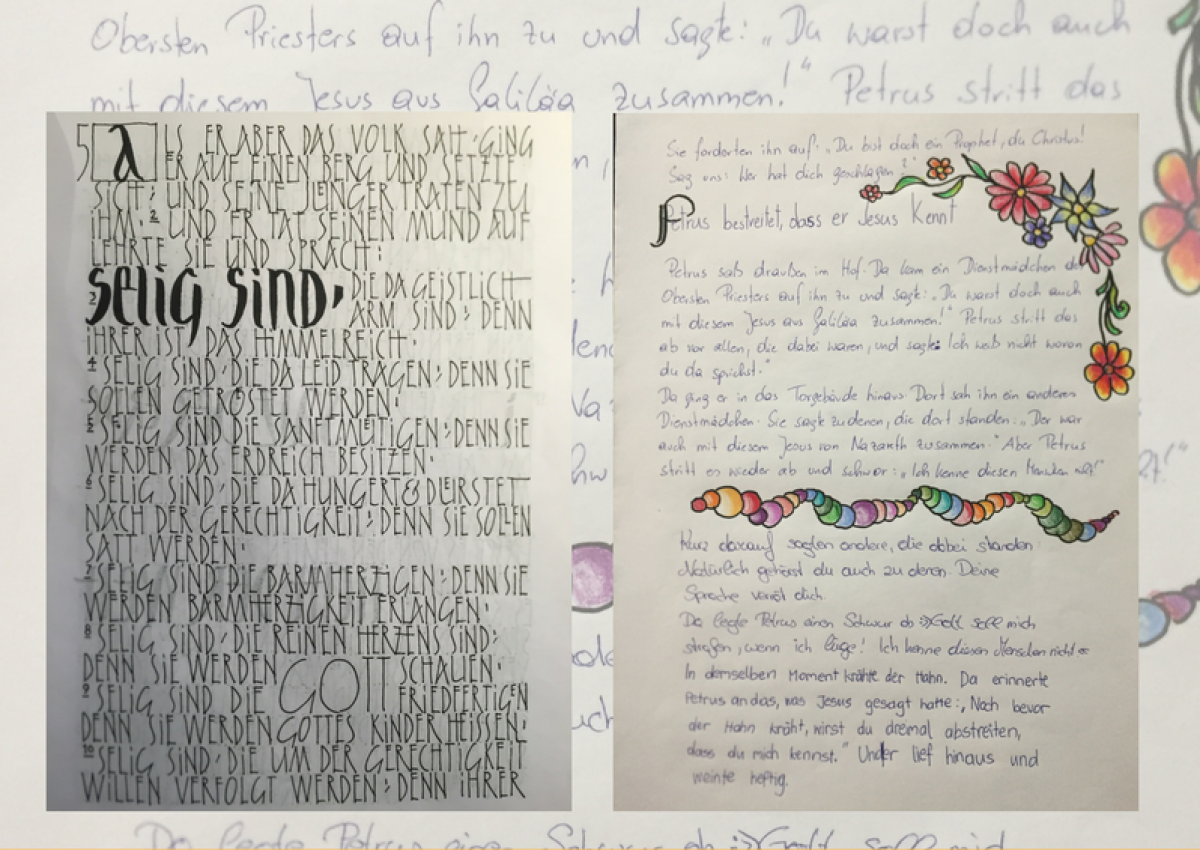 Obersten Priesters auf ihn zu und sagte: „Du warst doch auch
mit diesem Jesus aus Galiläa zusammen!“ Petrus stritt das
5 ALS ER ABER DAS VOLK SAH: GING
ER AUF EINEN BERG UND SETZTE
SICH; UND SEINE JUENGER TRATEN ZU
IHM. 2 UND ER TAT SEINEN MUND AUF
LEHRTE SIE UND SPRACH:
3 SELIG SIND, DIE DA GEISTLICH
ARM SIND; DENN
IHRER IST DAS HIMMELREICH.
4 SELIG SIND, DIE DA LEID TRAGEN; DENN SIE
SOLLEN GETRÖSTET WERDEN.
5 SELIG SIND DIE SANFTMUETIGEN; DENN SIE
WERDEN DAS ERDREICH BESITZEN.
6 SELIG SIND, DIE DA HUNGERT & DUERSTET
NACH DER GERECHTIGKEIT; DENN SIE SOLLEN
SATT WERDEN.
7 SELIG SIND, DIE BARMHERZIGEN; DENN SIE
WERDEN BARMHERZIGKEIT ERLANGEN.
8 SELIG SIND, DIE REINEN HERZENS SIND;
DENN SIE WERDEN GOTT SCHAUEN.
9 SELIG SIND DIE FRIEDFERTIGEN
DENN SIE WERDEN GOTTES KINDER HEISSEN.
10 SELIG SIND, DIE UM DER GERECHTIGKEIT
WILLEN VERFOLGT WERDEN; DENN IHRER
Sie forderten ihn auf: „Du bist doch ein Prophet, du Christus!
Sag uns: Wer hat dich geschlagen?“
Petrus bestreitet, dass er Jesus kennt
Petrus saß draußen im Hof. Da kam ein Dienstmädchen des
Obersten Priesters auf ihn zu und sagte: „Du warst doch auch
mit diesem Jesus aus Galiläa zusammen!“ Petrus stritt das
ab vor allen, die dabei waren, und sagte: Ich weiß nicht wovon
du da sprichst.“
Da ging er in das Torgebäude hinaus. Dort sah ihn ein anderes
Dienstmädchen. Sie sagte zu denen, die dort standen: „Der war
auch mit diesem Jesus von Nazareth zusammen.“ Aber Petrus
stritt es wieder ab und schwor: „Ich kenne diesen Menschen nicht!“
Kurz darauf sagten andere, die dabei standen:
Natürlich gehörst du auch zu denen. Deine
Sprache verrät dich.
Da legte Petrus einen Schwur ab: »Gott soll mich
strafen, wenn ich lüge! Ich kenne diesen Menschen nicht«
In demselben Moment krähte der Hahn. Da erinnerte
Petrus an das, was Jesus gesagt hatte: „Noch bevor
der Hahn kräht, wirst du dreimal abstreiten,
dass du mich kennst.“ Und er lief hinaus und
weinte heftig.
Da legte Petrus einen Schwur ab: »Gott soll mich